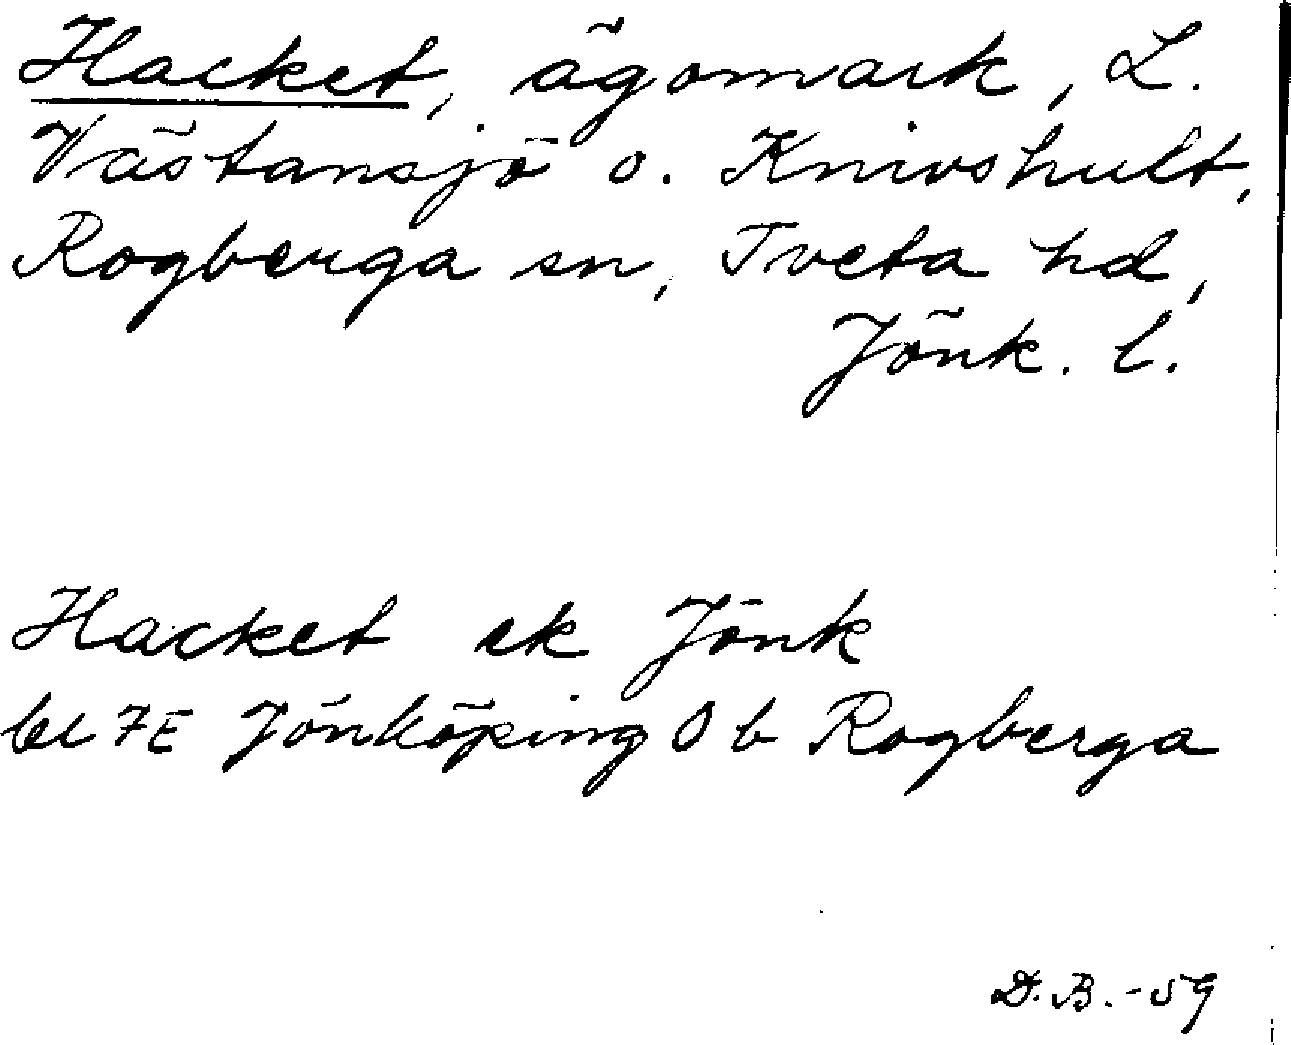 Hacket, ägomark, L.
Västansjö o. Knivshult,
Rogberga sn, Tveta hd,
Jönk. l.
Hacket ek Jönk
bl 7E Jönköping 0b Rogberga
D.B.-59